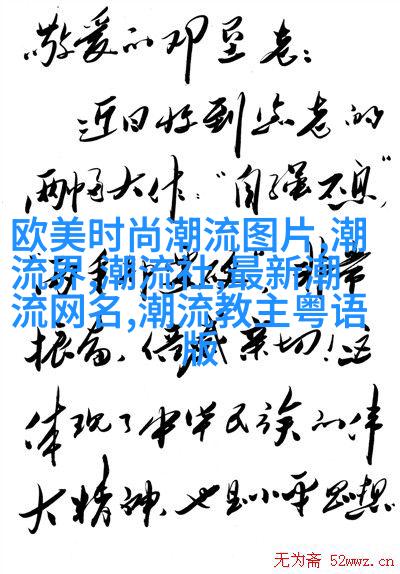 敬爱的邓垦老：
近日收到您老的
两幅大作："自强不息"，
欧美时尚潮流图片,潮
流界,潮流社,最新潮
流网名,潮流教主粤语
版
非常
振奋、倍感亲切！这
体现了中华民族的伟
大精神,也是小平思想
无为斋 52wwz.cn